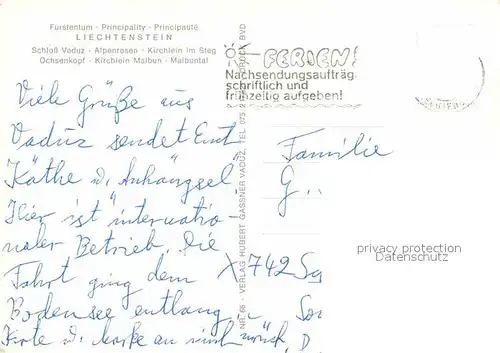 Fürstentum · Principality · Principauté
LIECHTENSTEIN
Schloß Vaduz · Alpenrosen · Kirchlein im Steg
Ochsenkopf · Kirchlein Malbun · Malbuntal
FERIEN!
Nachsendungsaufträg
schriftlich und
frühzeitig aufgeben!
Viele Grüße aus
Vaduz sendet Euch
Käthe u. Anhängsel"
Hier ist "internatio-
naler Betrieb. Die
Fahrt ging dem
Bodensee entlang
Karte u. an mich zurück,
NR. 66 - VERLAG HUBERT GASSNER VADUZ, TEL. 075 DRUCK BVD
Familie
G..
X 742
privacy protection
Datenschutz